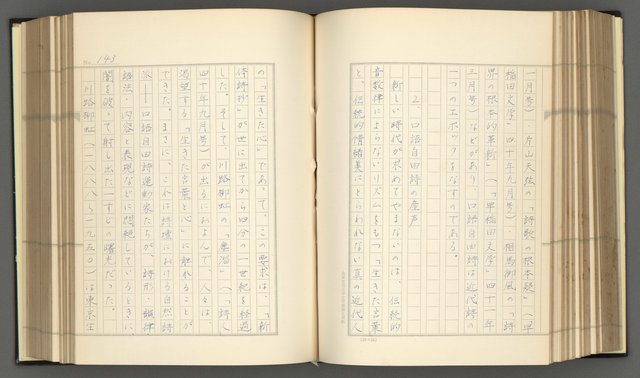 一月号)、片山天弦の「詩歌の根本疑」(「早
稲田文学」四十年九月号)、相馬御風の「詩
界の根本的革新」(「早稲田文学」四十一年
三月号)などがあり、口語自由詩は近代詩の
一つのエポックをなすのである。
2、口語自由詩の産声
新しい時代が求めてやまないのは、伝統的
音数律によらないリズムをもつ「生きた言葉
と、伝統的情緒美にとらわれない真の近代人
No. 143
の「生きた心」であって、この要求は、「新
体詩抄」が世に出てから四分の一世紀を経過
した。そして、川路柳虹の「塵溜」(「詩人」
四十年九月号)が出るにおよんで、人々は、
渇望する「生きた言葉と心」に触れることが
できた。まさに、これは詩壇における自然詩
派——口語自由詩運動家たちが、詩形・韻律
語法・内容と表現などに想処しているときに、
闇を破って射し出た一すじの曙光だった。
川路柳虹(一八八八—一九五〇)は東京生